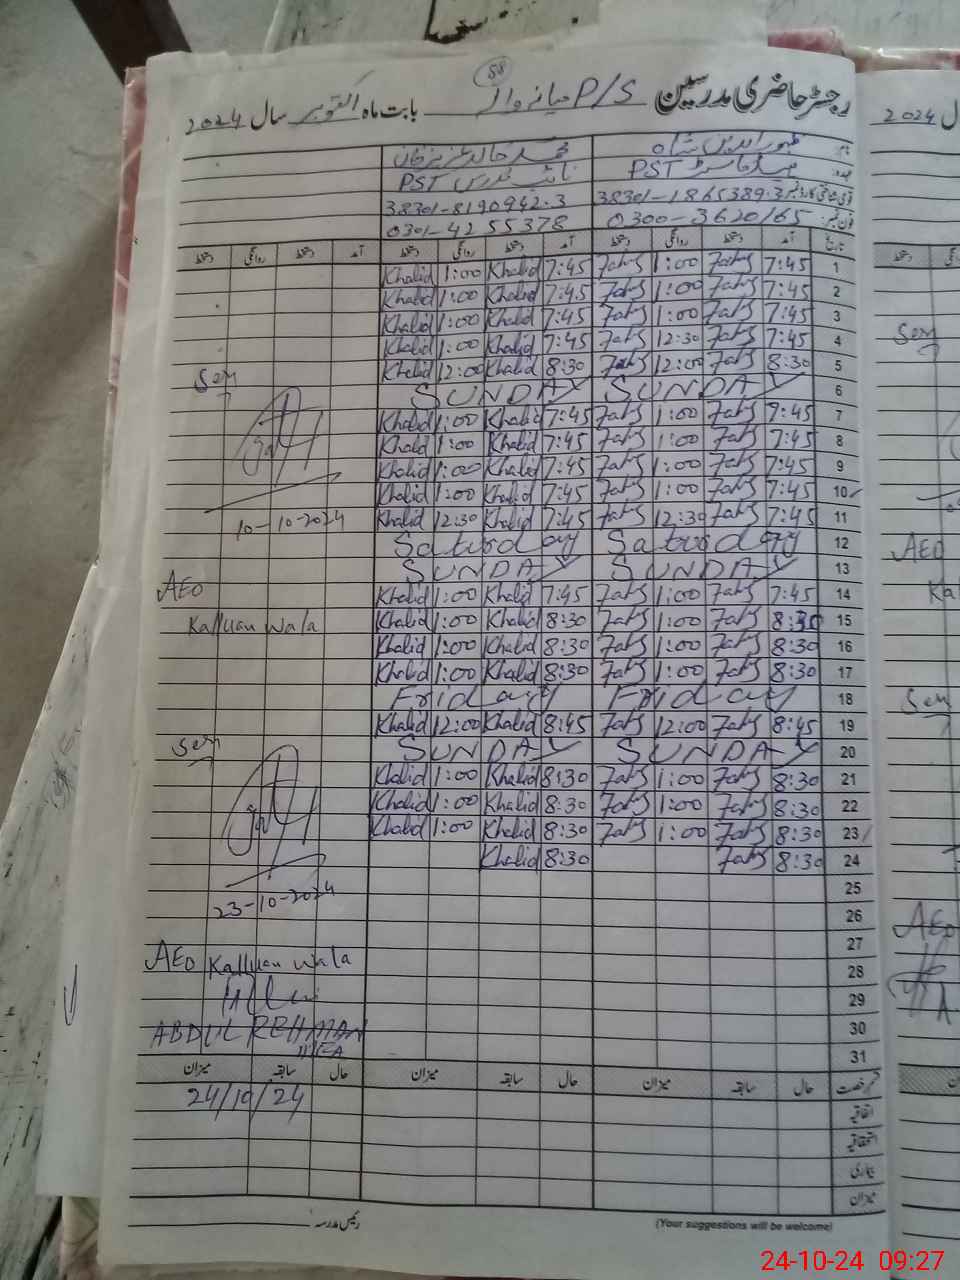 58
رجسٹر حاضری مدرسین P/S میانوالہ بابت ماہ اکتوبر سال 2024
ظہور الدین شاہ محمد خالد عزیز خان
ہیڈ ماسٹر PST نائب مدرس PST
38301-1865389-3 38301-8190942-3
0300-3620165 0301-4255378
تاریخ آمد دستخط روانگی دستخط آمد دستخط روانگی دستخط آمد دستخط روانگی دستخط
1 7:45 1:00 7:45 Khalid 1:00 Khalid
2 7:45 1:00 7:45 Khalid 1:00 Khalid
3 7:45 1:00 7:45 Khalid 1:00 Khalid
4 7:45 12:30 7:45 Khalid 1:00 Khalid
5 8:30 12:00 8:30 Khalid 12:00 Khalid
6 SUNDAY SUNDAY
7 7:45 1:00 7:45 Khalid 1:00 Khalid
8 7:45 1:00 7:45 Khalid 1:00 Khalid
9 7:45 1:00 7:45 Khalid 1:00 Khalid
10 7:45 1:00 7:45 Khalid 1:00 Khalid
11 7:45 12:30 7:45 Khalid 12:30 Khalid
10-10-2024
12 Saturday Saturday
13 SUNDAY SUNDAY
14 7:45 1:00 7:45 Khalid 1:00 Khalid
AEO
15 8:30 1:00 8:30 Khalid 1:00 Khalid
Kalluan wala
16 8:30 1:00 8:30 Khalid 1:00 Khalid
17 8:30 1:00 8:30 Khalid 1:00 Khalid
18 Friday Friday
19 8:45 12:00 8:45 Khalid 12:00 Khalid
20 SUNDAY SUNDAY
21 8:30 1:00 8:30 Khalid 1:00 Khalid
22 8:30 1:00 8:30 Khalid 1:00 Khalid
23 8:30 1:00 8:30 Khalid 1:00 Khalid
24 8:30 8:30 Khalid
25
23-10-2024
26
27
AEO Kalluan wala
28
29
30
ABDUL REHMAN
31
رخصت حال سابقہ میزان حال سابقہ میزان حال سابقہ میزان
24/10/24
اتفاقیہ
استحقاقیہ
بیماری
میزان
رئیس مدرسہ
(Your suggestions will be welcome)
2024
AEO
AEO
24-10-24 09:27